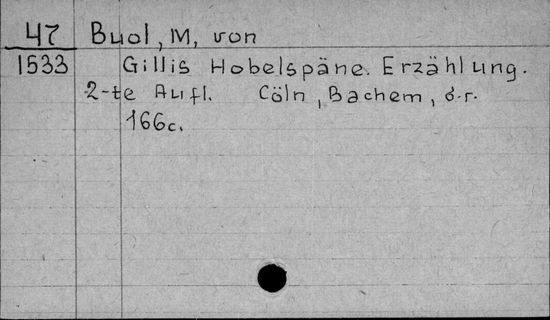 47 Buol, M, von
1533 Gillis Hobelspäne. Erzählung.
2-te Aufl. Cöln, Bachem, б.г.
166с.